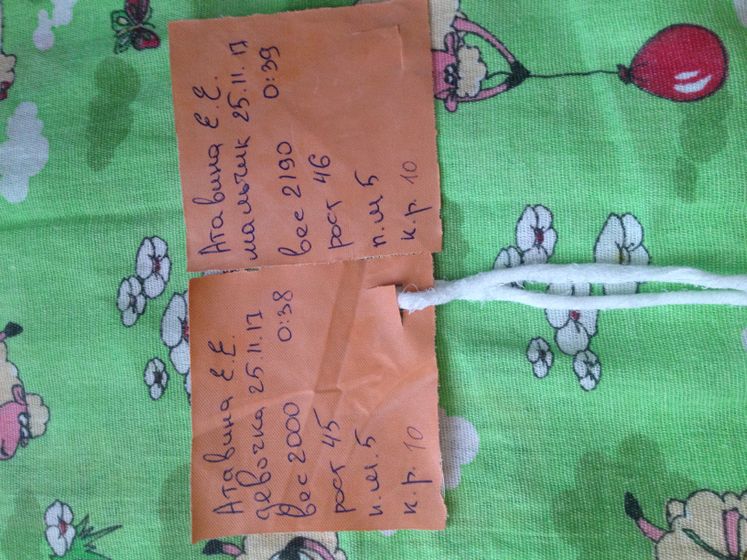 Атавина Е.Е.
мальчик 25.11.17
0:39
вес 2190
рост 46
п.м 5
к.р. 10
Атавина Е.Е.
девочка 25.11.17
0:38
вес 2000
рост 45
п.м.5
к.р. 10